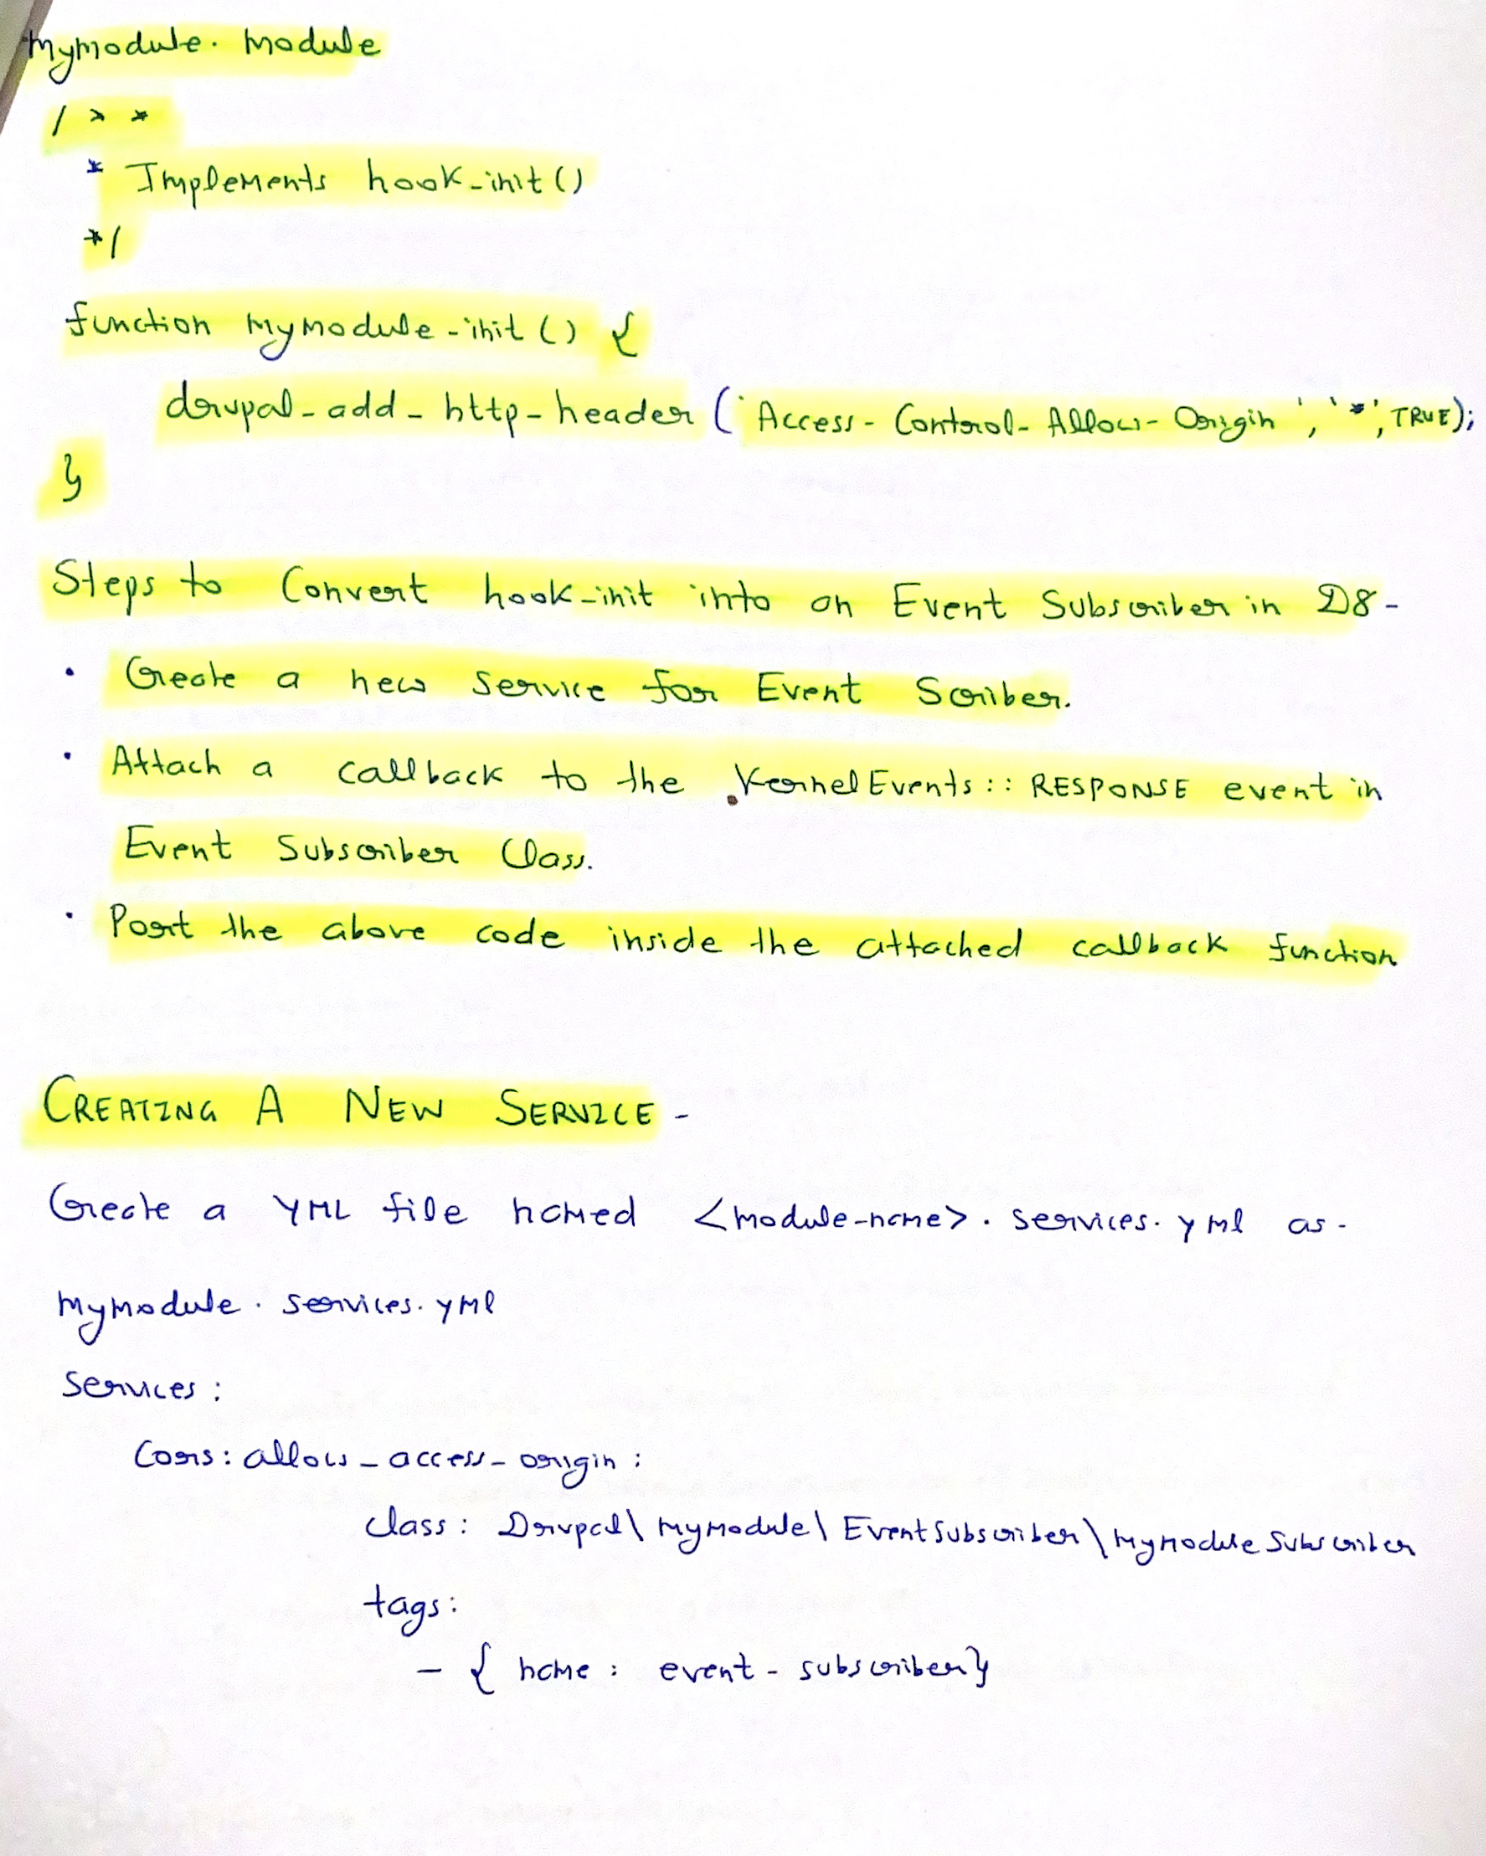 mymodule.module
/**
* Implements hook_init()
*/
function mymodule_init() {
drupal_add_http_header('Access-Control-Allow-Origin', '*', TRUE);
}
Steps to Convert hook_init into an Event Subscriber in D8-
• Create a new service for Event Scriber.
• Attach a callback to the KernelEvents::RESPONSE event in
Event Subscriber Class.
• Port the above code inside the attached callback function
CREATING A NEW SERVICE -
Create a YML file named <module-name>.services.yml as-
mymodule.services.yml
services:
Cors:allow_access_origin:
class: Drupal\mymodule\EventSubscriber\mymoduleSubscriber
tags:
- { name: event-subscriber}